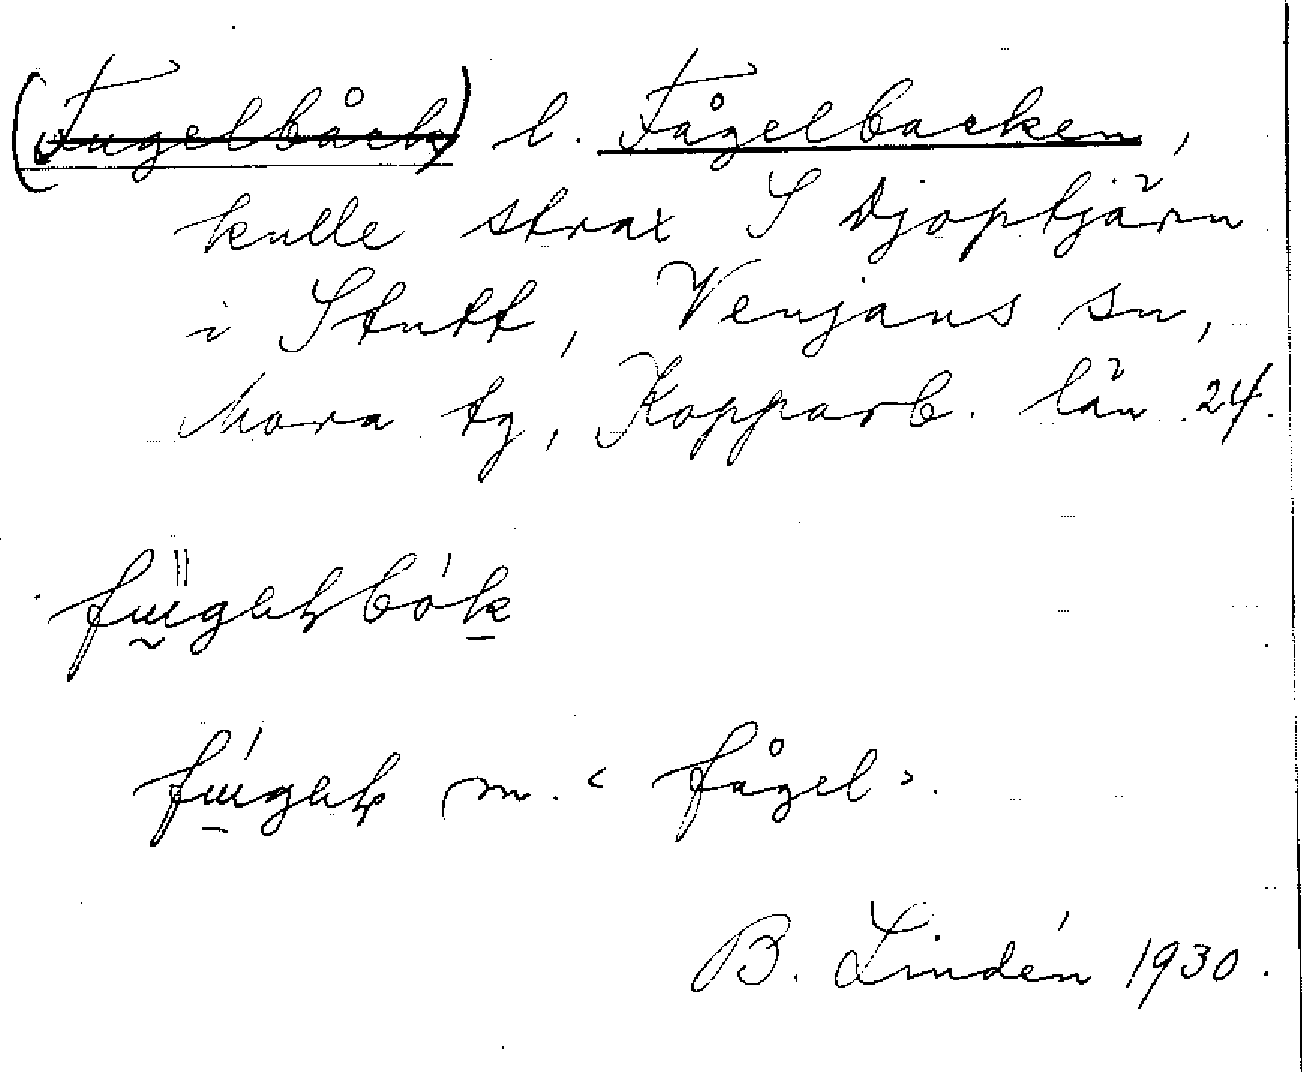 (Fugelbåck) l. Fågelbacken,
kulle strax S Djoptjärn
i Stutt, Venjans sn,
Mora tg, Kopparb. län 24.
m. ‹ fågel ›.
B. Lindén 1930.